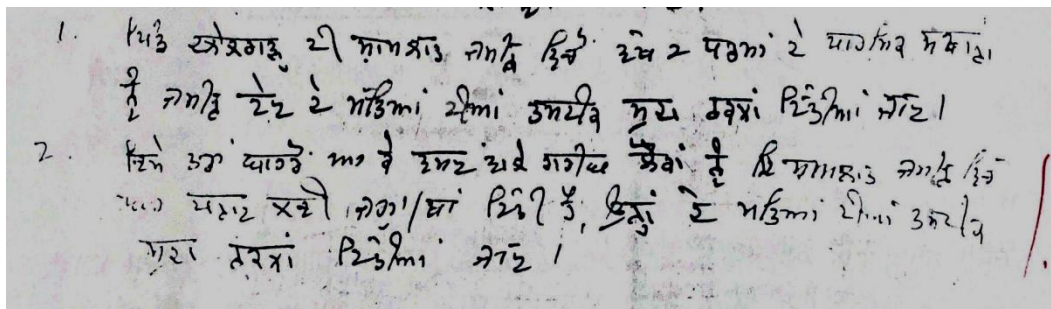 1. ਪਿੰਡ ਦੀ ਸ਼ਾਮਲਾਤ ਜਮੀਨ ਵਿਚੋਂ ਵੱਖ 2 ਧਰਮਾਂ ਦੇ ਧਾਰਮਿਕ ਸਥਾਨਾਂ
ਨੂੰ ਜਮੀਨ ਦੇਣ ਦੇ ਮਤਿਆਂ ਦੀਆਂ ਤਸਦੀਕ ਸ਼ੁਦਾ ਨਕਲਾਂ ਦਿੱਤੀਆਂ ਜਾਣ।
2. ਇਸੇ ਤਰਾਂ ਬਾਹਰੋਂ ਆ ਕੇ ਵਸਣ ਵਾਲੇ ਗਰੀਬ ਲੋਕਾਂ ਨੂੰ ਸ਼ਾਮਲਾਤ ਜਮੀਨ ਵਿਚੋਂ
ਲਈ ਜਗ੍ਹਾ/ਥਾਂ ਦਿੱਤੀ ਹੈ, ਉਨ੍ਹਾਂ ਦੇ ਮਤਿਆਂ ਦੀਆਂ ਤਸਦੀਕ
ਸ਼ੁਦਾ ਨਕਲਾਂ ਦਿੱਤੀਆਂ ਜਾਣ।